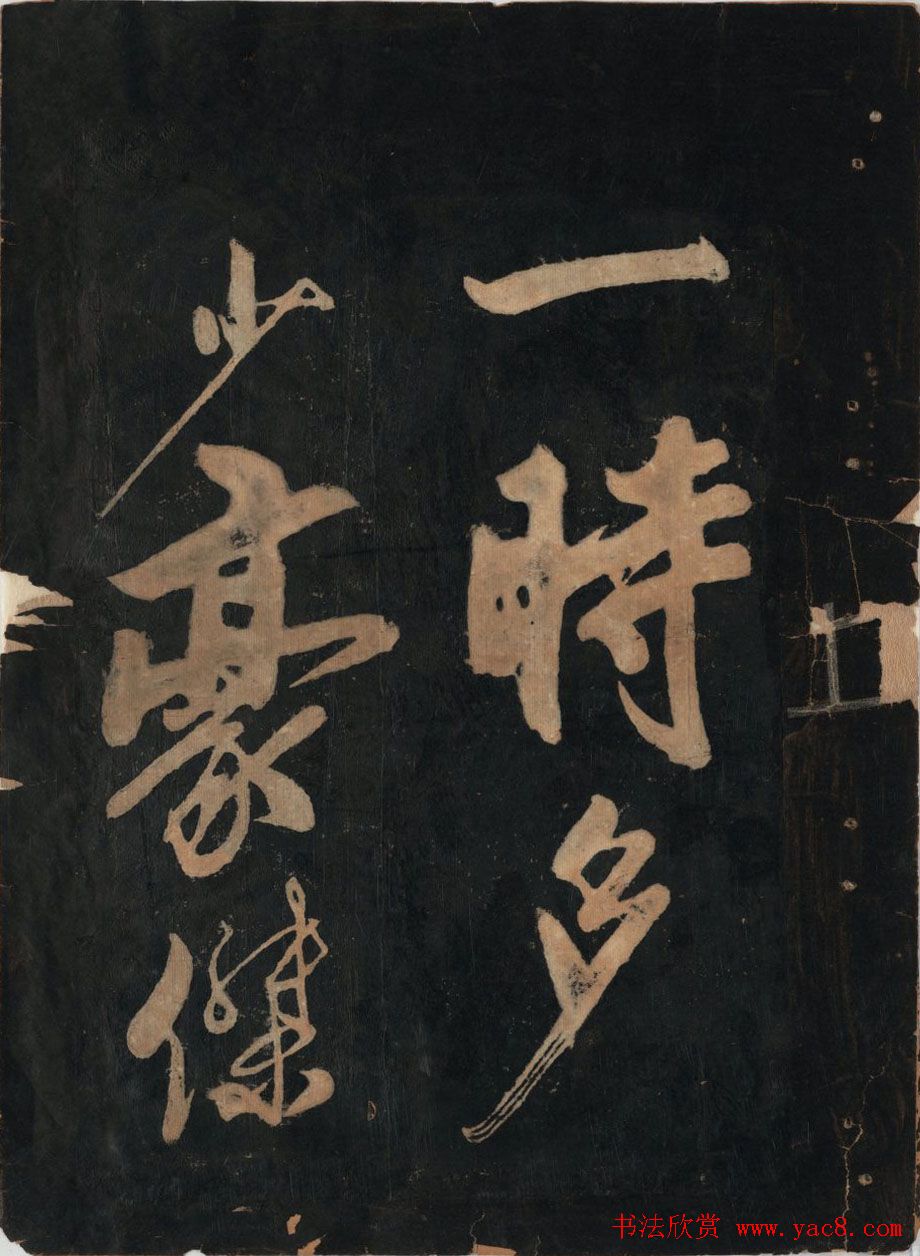 一時多
少豪傑
书法欣赏 www.yac8.com